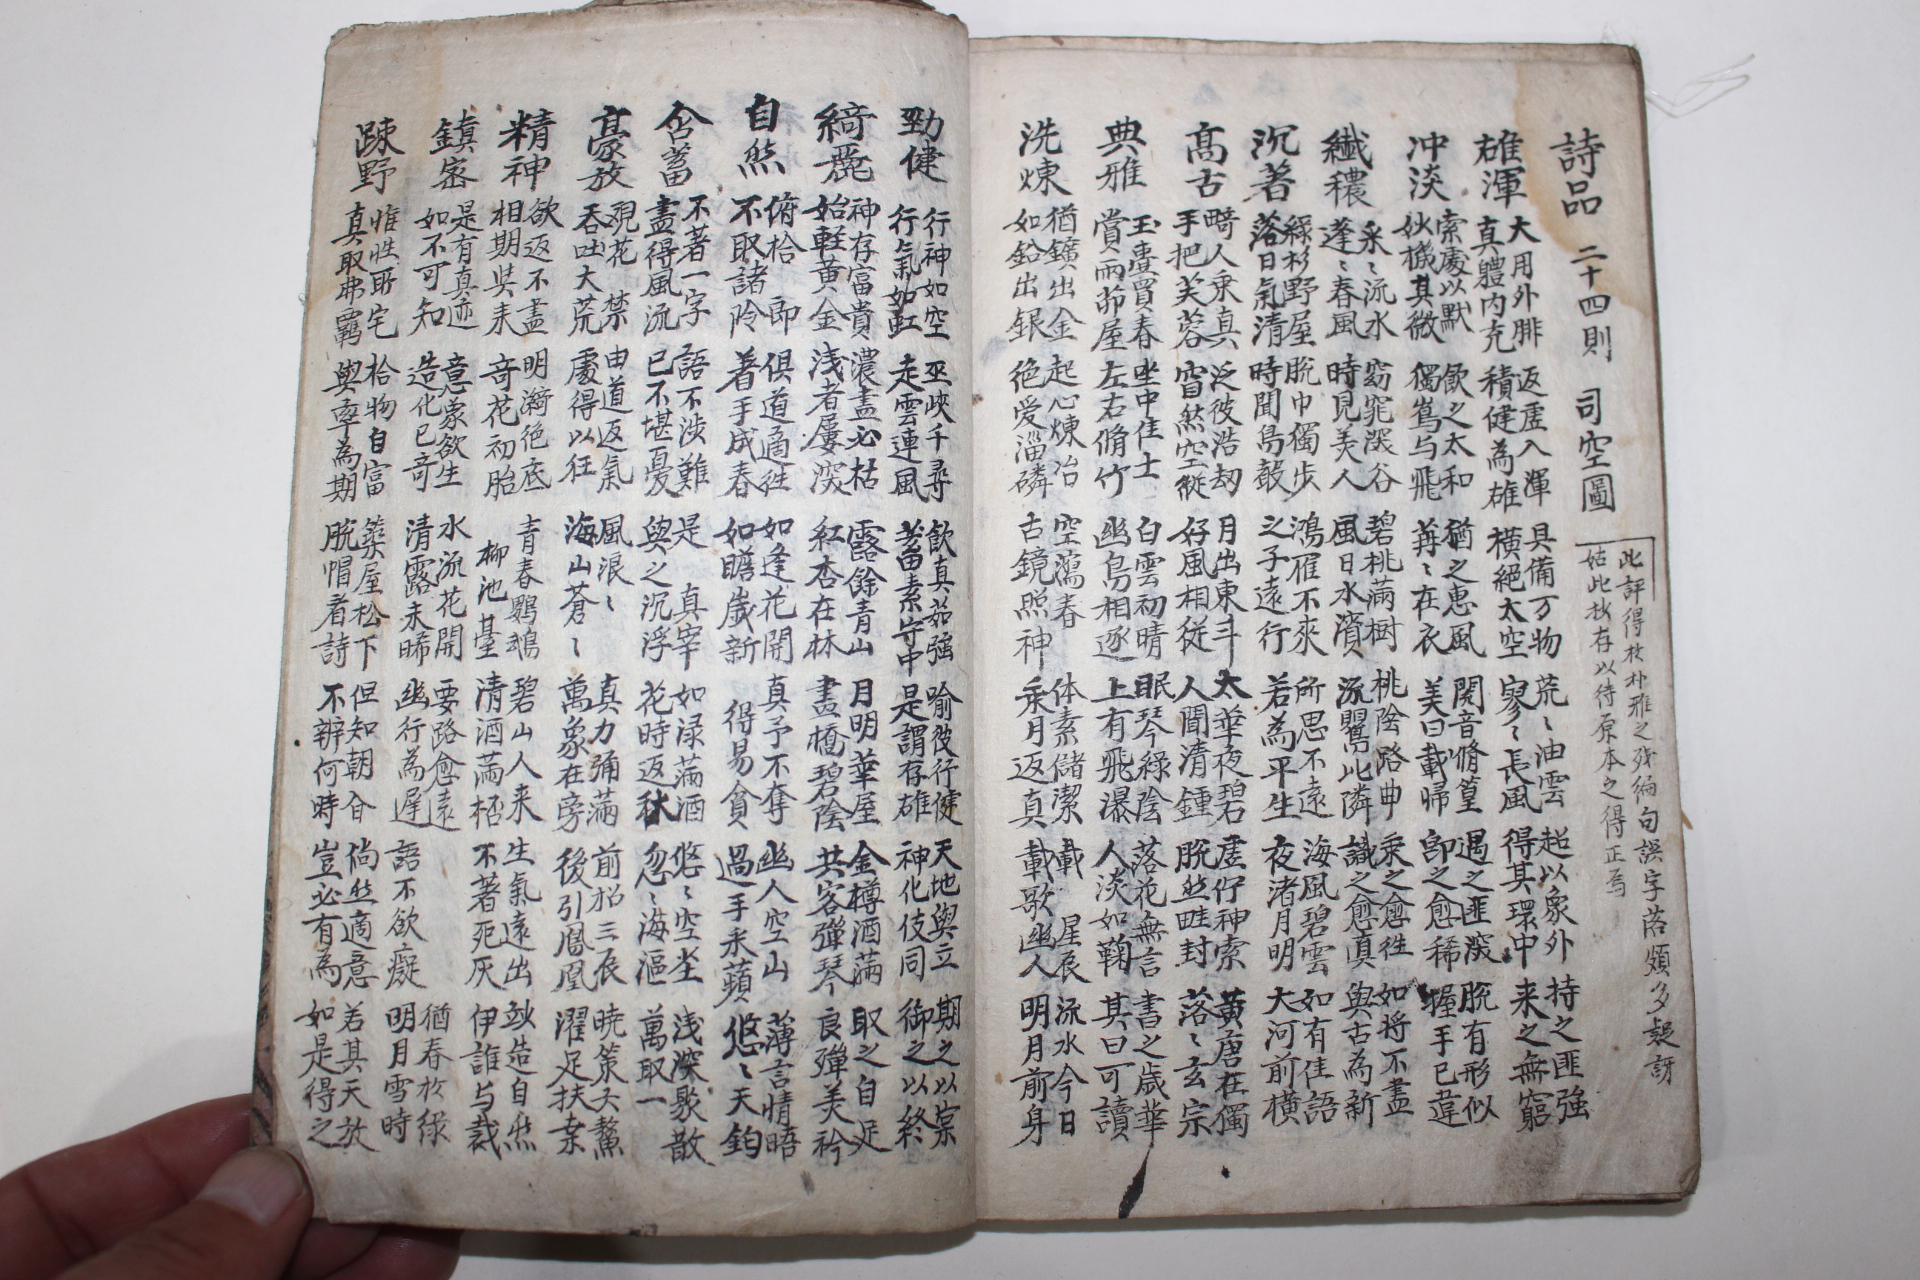 詩品 二十四則 司空圖 此評得扵朴雅之殘編句誤字落頗多疑訝 姑此抄存以待原本之得正焉
雄渾 大用外腓 真體內充 返虛入渾 積健為雄 具備万物 橫絕太空 荒〻油雲 寥〻長風 超以象外 得其環中 持之匪強 来之無窮
冲淡 索處以默 妙機其微 飲之太和 獨鶴与飛 猶之惠風 苒〻在衣 閱音脩篁 美曰載歸 遇之匪深 即之愈稀 脫有形似 握手已違
纖穠 采〻流水 蓬〻春風 窈窕深谷 時見美人 碧桃滿樹 風日水濱 桃陰路曲 流鶯比隣 乘之愈往 識之愈真 如将不盡 與古為新
沉著 綠杉野屋 落日氣清 脫巾獨步 時聞鳥鼓 鴻雁不來 之子遠行 所思不遠 若為平生 海風碧雲 夜渚月明 如有佳語 大河前橫
高古 畸人乘真 手把芙蓉 泛彼浩劫 窅然空縱 月出東斗 好風相從 太華夜碧 人聞清鍾 虛佇神索 脫然畦封 黃唐在獨 落〻玄宗
典雅 玉壺買春 賞雨茆屋 坐中佳士 左右脩竹 白雲初晴 幽鳥相逐 眠琴綠陰 上有飛瀑 落花無言 人淡如鞠 書之歲華 其曰可讀
洗煉 猶鑛出金 如鉛出銀 起心煉冶 絕愛淄磷 空瀉春 古鏡照神 体素儲潔 乘月返真 載 星辰 載歌幽人 流水今日 明月前身
勁健 行神如空 行氣如虹 巫峽千尋 走雲連風 飲真茹強 蓄素守中 喻彼行健 是謂存雄 天地與立 神化伎同 期之以宗 御之以終
綺麗 神存富貴 始輕黃金 濃盡必枯 淺者屢深 露餘青山 紅杏在林 月明華屋 畫橋碧陰 金樽酒滿 共客彈琴 取之自足 良彈美衿
自然 俯拾 即 不取諸隣 俱道適往 著手成春 如逢花開 如瞻歲新 真予不奪 得易貧 幽人空山 過手采蘋 薄言情晤 悠〻天鈞
含蓄 不著一字 盡得風流 語不涉難 已不堪憂 是 真宰 與之沉浮 如淥滿酒 花時返秋 悠〻空坐 忽〻海漚 淺深聚散 萬取一
豪放 覌花 禁 吞吐大荒 由道返氣 處得以狂 風浪〻 海山蒼〻 真力弥滿 萬象在旁 前招三辰 後引鳳凰 曉策六鰲 濯足扶桒
精神 欲返不盡 相期與来 明漪絕底 奇花初胎 青春鸚鵡 柳池臺 碧山人来 清酒滿桮 生氣遠出 不著死灰 妙造自然 伊誰与裁
縝密 是有真迹 如不可知 意象欲生 造化已奇 水流花開 清露未晞 要路愈遠 幽行為遅 語不欲癡 猶春扵綠 明月雪時
疎野 惟性所宅 真取弗羈 拾物自富 與率為期 築屋松下 脫帽看詩 但知朝合 不辨何時 倘然適意 豈必有為 若其天放 如是得之